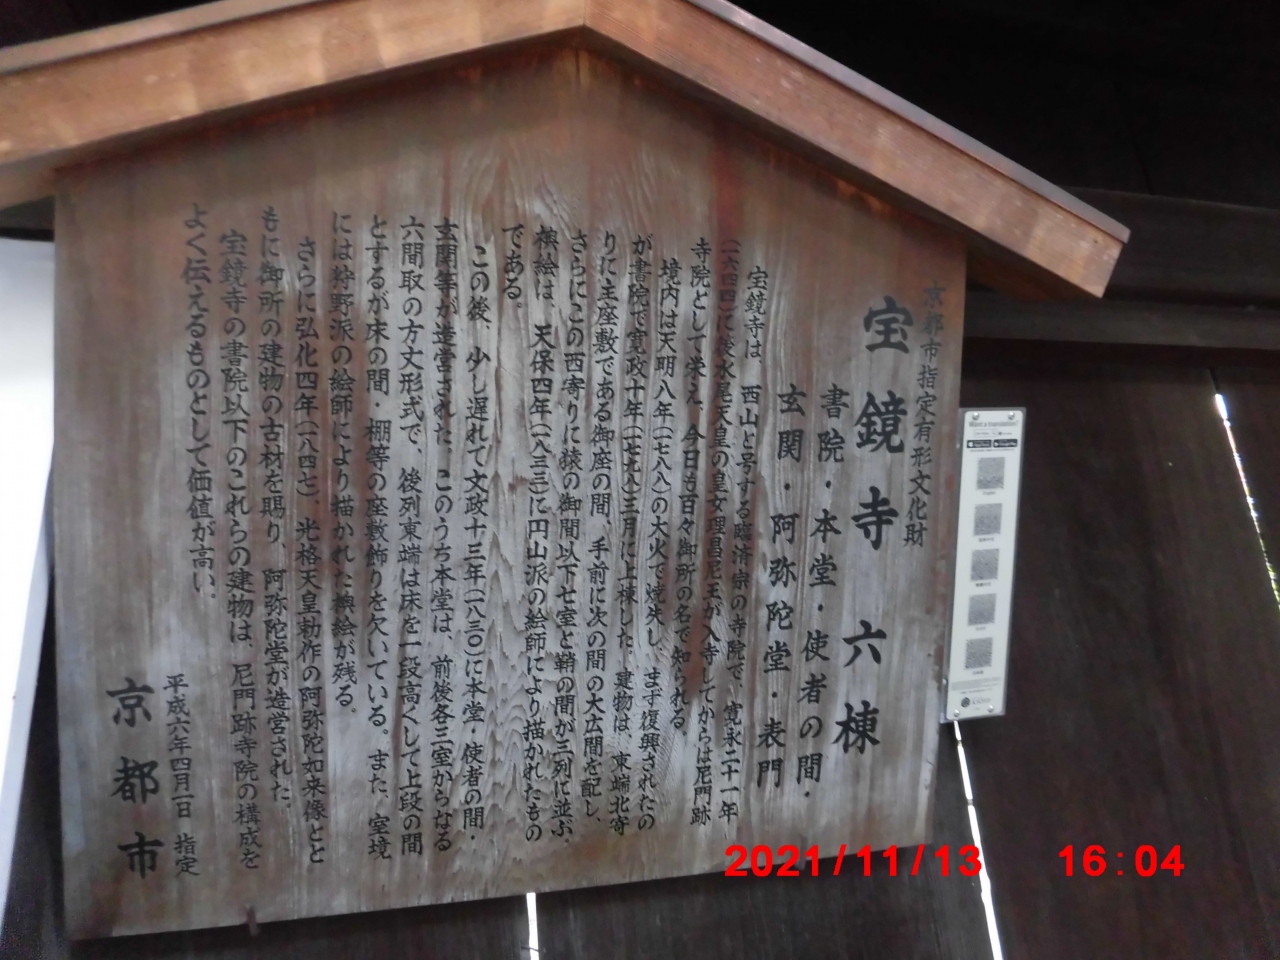 京都市指定有形文化財
宝鏡寺 六棟
書院・本堂・使者の間・
玄関・阿弥陀堂・表門
宝鏡寺は、西山と号する臨済宗の寺院で、寛永二十一年
(一六四四)に後水尾天皇の皇女理昌尼王が入寺してからは尼門跡
寺院として栄え、今日も百々御所の名で知られる。
境内は天明八年(一七八八)の大火で焼失し、まず復興されたの
が書院で寛政十年(一七九八)三月に上棟した。建物は、東端北寄
りに主座敷である御座の間、手前に次の間の大広間を配し、
さらにこの西寄りに猿の御間以下七室と鞘の間が三列に並ぶ。
襖絵は、天保四年(一八三三)に円山派の絵師により描かれたもの
である。
この後、少し遅れて文政十三年(一八三〇)に本堂・使者の間・
玄関等が造営された。このうち本堂は、前後各三室からなる
六間取の方丈形式で、後列東端は床を一段高くして上段の間
とするが床の間・棚等の座敷飾りを欠いている。また、室境
には狩野派の絵師により描かれた襖絵が残る。
さらに弘化四年(一八四七)、光格天皇勅作の阿弥陀如来像とと
もに御所の建物の古材を賜り、阿弥陀堂が造営された。
宝鏡寺の書院以下のこれらの建物は、尼門跡寺院の構成を
よく伝えるものとして価値が高い。
平成六年四月一日 指定
京都市
Want a translation?
2021/11/13 16:04